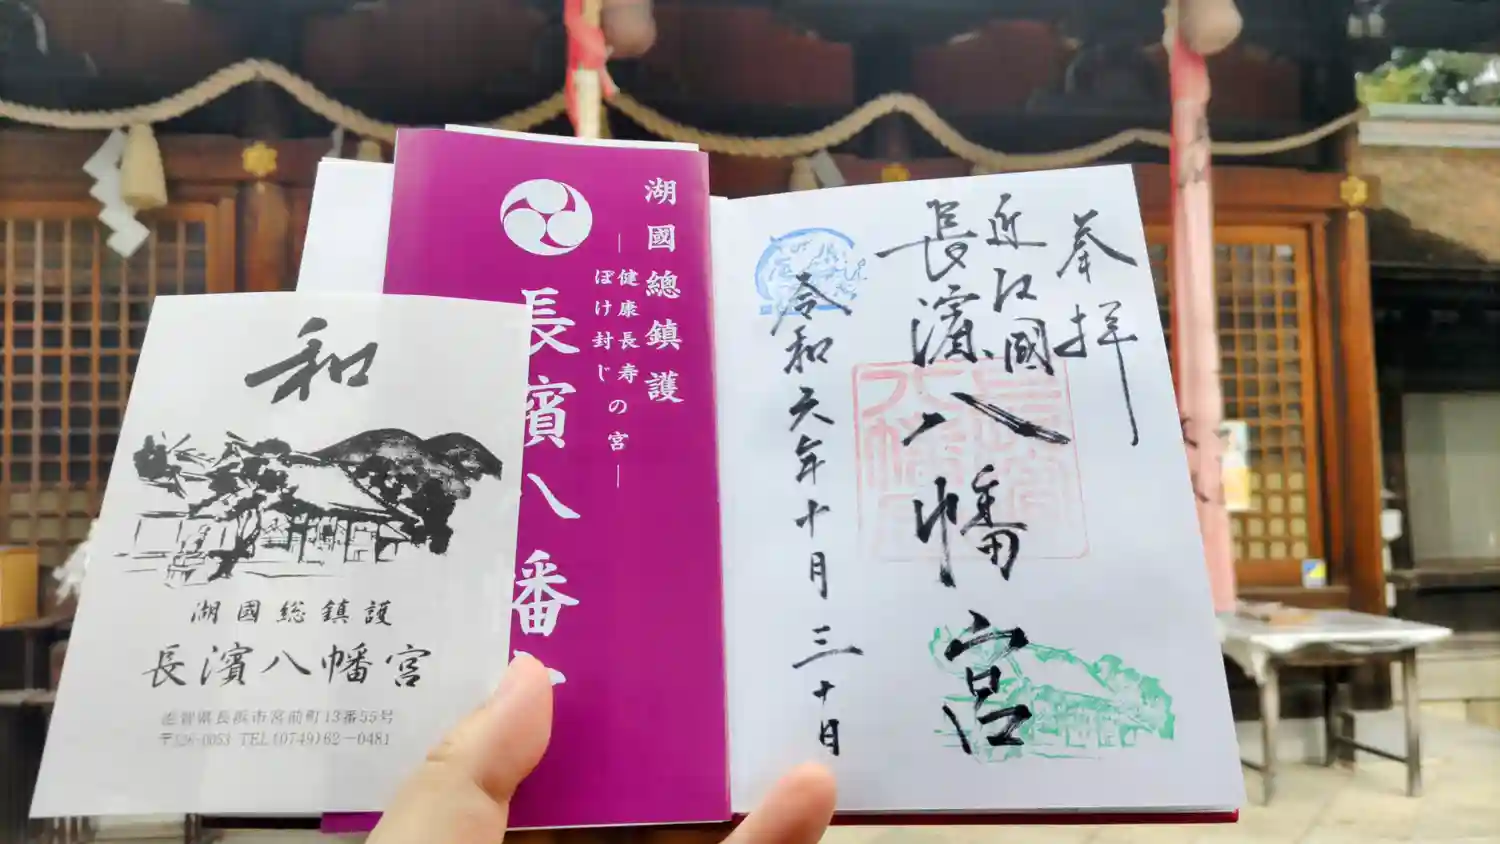 和
湖國総鎮護
長濱八幡宮
滋賀県長浜市宮前町13番55号
〒526-0053 TEL(0749)62-0481
湖國總鎮護
―健康長寿の宮―
ぼけ封じ
長濱八幡
奉拝
近江國
長濱八幡宮
令和元年十月三十日